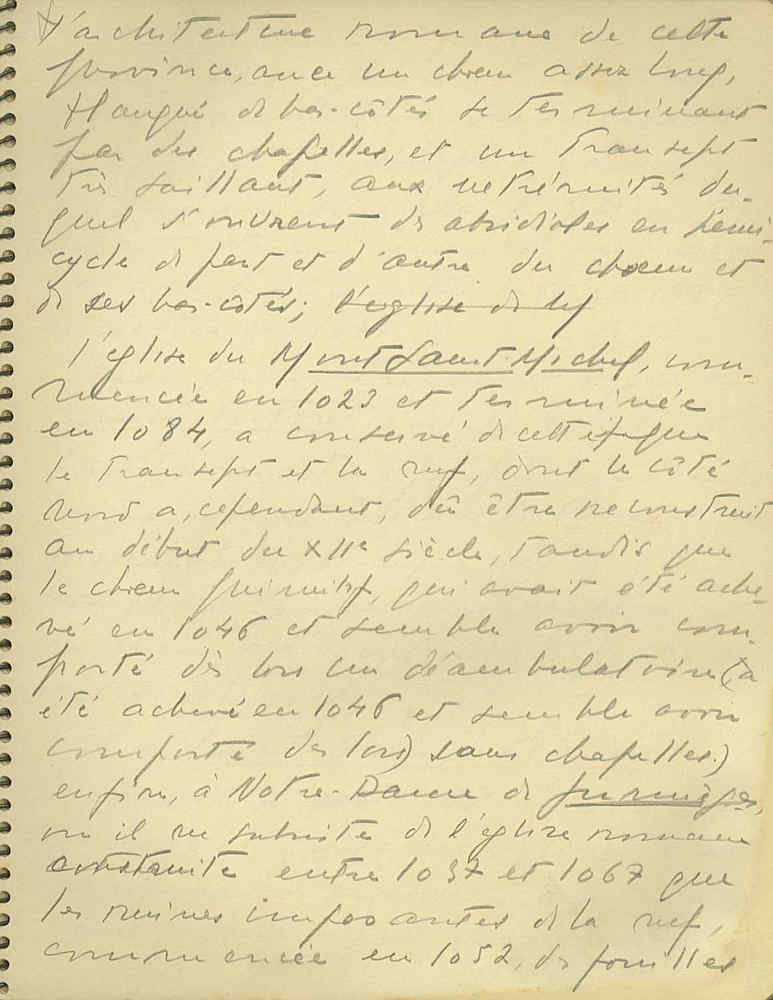 l'architecture romane de cette
province, avec un chœur assez long,
flanqué de bas-côtés se terminant
par des chapelles, et un transept
très saillant, aux extrémités du-
quel s'ouvrent des absidioles en demi-
cycle de part et d'autre du chœur et
de ses bas-côtés; l'église de
l'église du Mont Saint-Michel, com-
mencée en 1023 et terminée
en 1084, a conservé de cette époque
le transept et la nef, dont le côté
nord a, cependant, dû être reconstruit
au début du XIIe siècle, tandis que
le chœur primitif, qui avait été ache-
vé en 1046 et semble avoir com-
porté dès lors un déambulatoire (a
été achevé en 1046 et semble avoir
comporté dès lors) sans chapelles.)
enfin, à Notre-Dame de Jumièges,
où il ne subsiste de l'église romane
construite entre 1037 et 1067 que
les ruines imposantes de la nef,
commencée en 1052, des fouilles